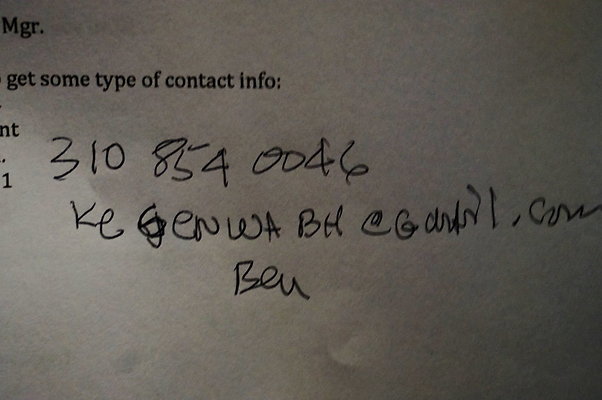 Mgr.
get some type of contact info:
nt
.
1
310 854 0046
@Gmail.com
Ben